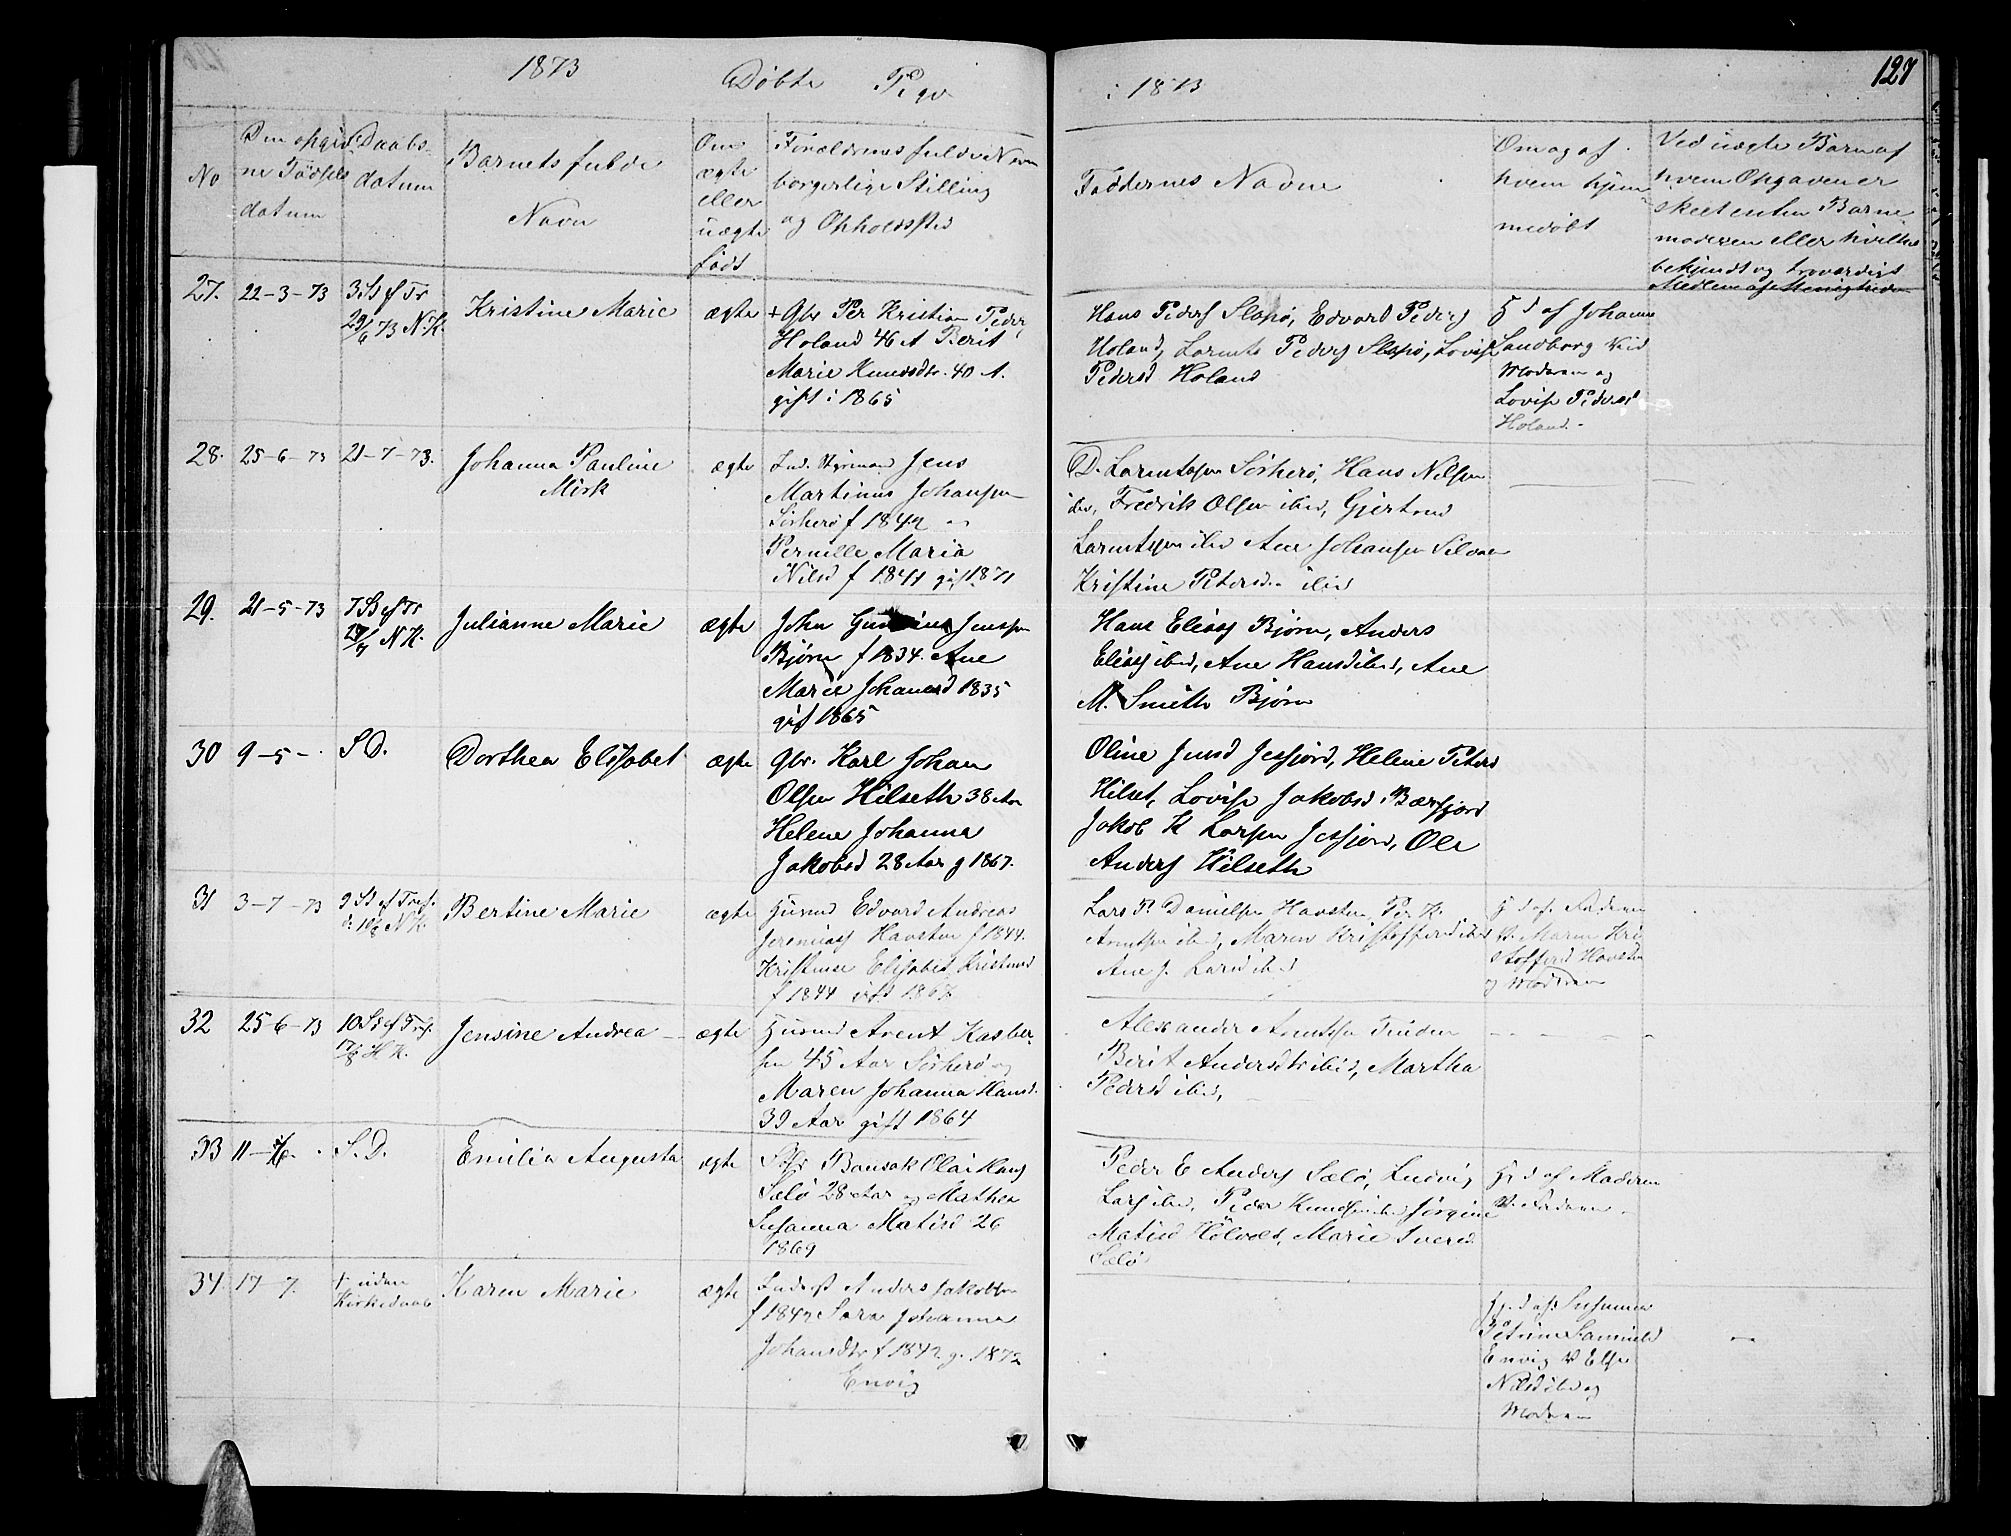 1873 Døbte Pige
i 1873
127
No
Den opgiv
ne Fødsels
datum
Daabs-
datum
Barnets fulde
Navn
Om
ægte
eller
uægte
født
Forældrenes fulde Navn
borgerlige Stilling
og Opholdssted
Faddernes Navne
Om og af
hvem hjem
medøbt
Ved uægte Børn af
hvem Opgaven er
skeet enten Barne
moderen eller hvilke
bekjendt og troværdigt
Medlem af Menigheden
27. 22-3-73
3 S ef Tr
29/6 73 N.K.
Kristine Marie
ægte
+ Gbr Per Kristian Peders
Holand 46 A Berit
Marie Knudsdtr. 40 A.
gift i 1865
Hans Peders Slapø, Edvard Peders
Holand, Larents Peders Slapø, Lovise
Pedersd Holand
H d af Johanne
Sandborg Veid
Moderen og
Lovise Pedersd
Holand.-
28. 25-6-73 21-7-73.
Johanna Pauline
Mirk
ægte
Ind. Styrmand Jens
Martinus Johansen
Sörherø f 1842
Pernille Maria
Nilsd f 1841 gift 1871
D. Larentsen Sörherø, Hans Nilsen
ibid, Fredrik Olsen ibid, Gjertrud
Larentsen ibid Ane Johansen
Kristine Petersd. ibid
29. 21-5-73
7 S ef Tr
N K.
Julianne Marie
ægte
John Jensen
Bjørn f 1834. Ane
Marie Johansd 1835
gif 1865
Hans Elias Bjørn, Anders
Elias ibid, Ane Hansd ibid, Ane
M. Smith Bjørn
30 9-5-.
S D.
Dorthea Elisabet
ægte
Gbr. Karl Johan
Olsen Hilseth 38 Aar
Helene Johanna
Jakobsd 28 Aar g 1867.
Oline Jensd Jesfjord, Helene Peters
Hilset, Lovise Jakobsd Bærfjord
Jakob K Larsen Jesfjord, Ole
Anders Hilseth
31 3-7-73
9 S ef Tref.
10/8 N K.
Bertine Marie
ægte
Husmd Edvard Andreas
Jeremias Havsten f 1844.
Kristense Elisabet Kristensd
f 1844 gift 1867
Lars P. Danielsen Havsten, Per K.
Arntsen ibid, Maren Kristoffersd ibid
Ane J. Larsd ibid
H d af Faderen
V. Maren Kri
stoffersd Havsten
og Moderen
32 25 6-73
10 S ef Tref.
17/8 H K.
Jensine Andrea
ægte
Husmd Arent Kasber-
sen 45 Aar Sörherø og
Maren Johanna Hansd.
39 Aar gift 1864
Alexander Arentsen Tenden
Berit Andersdtr ibid, Martha
Pedersd ibid,
33 11-
S. D.
Emilia Augusta
ægte
Bansak Olai Hans
Sælö 28 Aar og Mathea
Susanna Matisd 26
1869
Peder E Anders Sælö, Ludvig
Lars ibid, Peder Knudsen ibid Jörgine
Matisd Hölvold, Marie Iversd.
Sælö
H d af Moderen
V. Faderen.
34. 17-7.
+ uden
Kirkedaab
Karen Marie
ægte
Inderst Anders Jakobsen
f 1842 Sara Johanna
Johansdtr f 1842 g. 1872
Envig
H. d af Susanna
Petrine Samuelsd
Envig V Else
Nilsd ibid og
Moderen